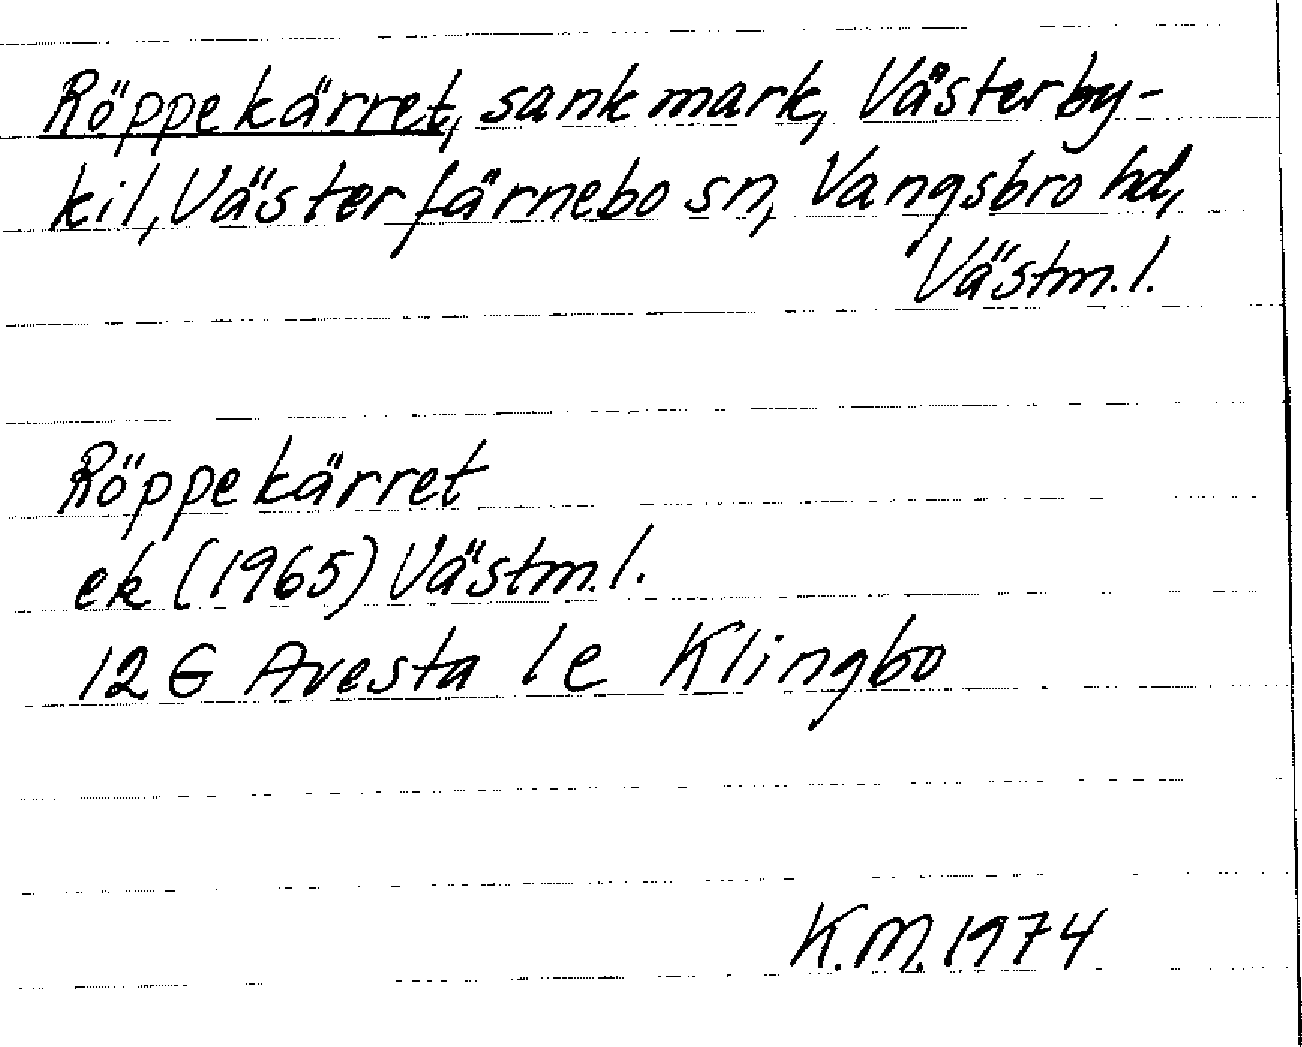 Röppekärret, sankmark, Västerby-
kil, Västerfärnebo sn, Vangsbro hd,
Västm.l.
Röppekärret
ek (1965) Västm.l.
12 G Avesta 1e Klingbo
K.M. 1974